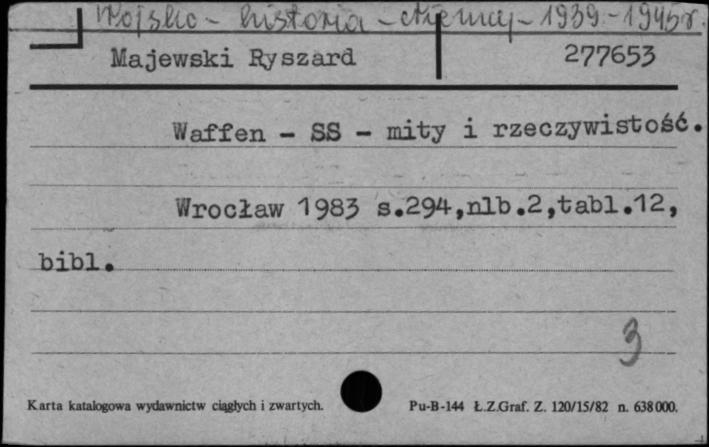 Wojsko - historia - Niemcy - 1939-1945 r.
Majewski Ryszard 277653
Waffen - SS - mity i rzeczywistość.
Wrocław 1983 s.294,nlb.2,tabl.12,
bibl.
3
Karta katalogowa wydawnictw ciągłych i zwartych. Pu-B-144 Ł.Z.Graf. Z. 120/15/82 n. 638000.